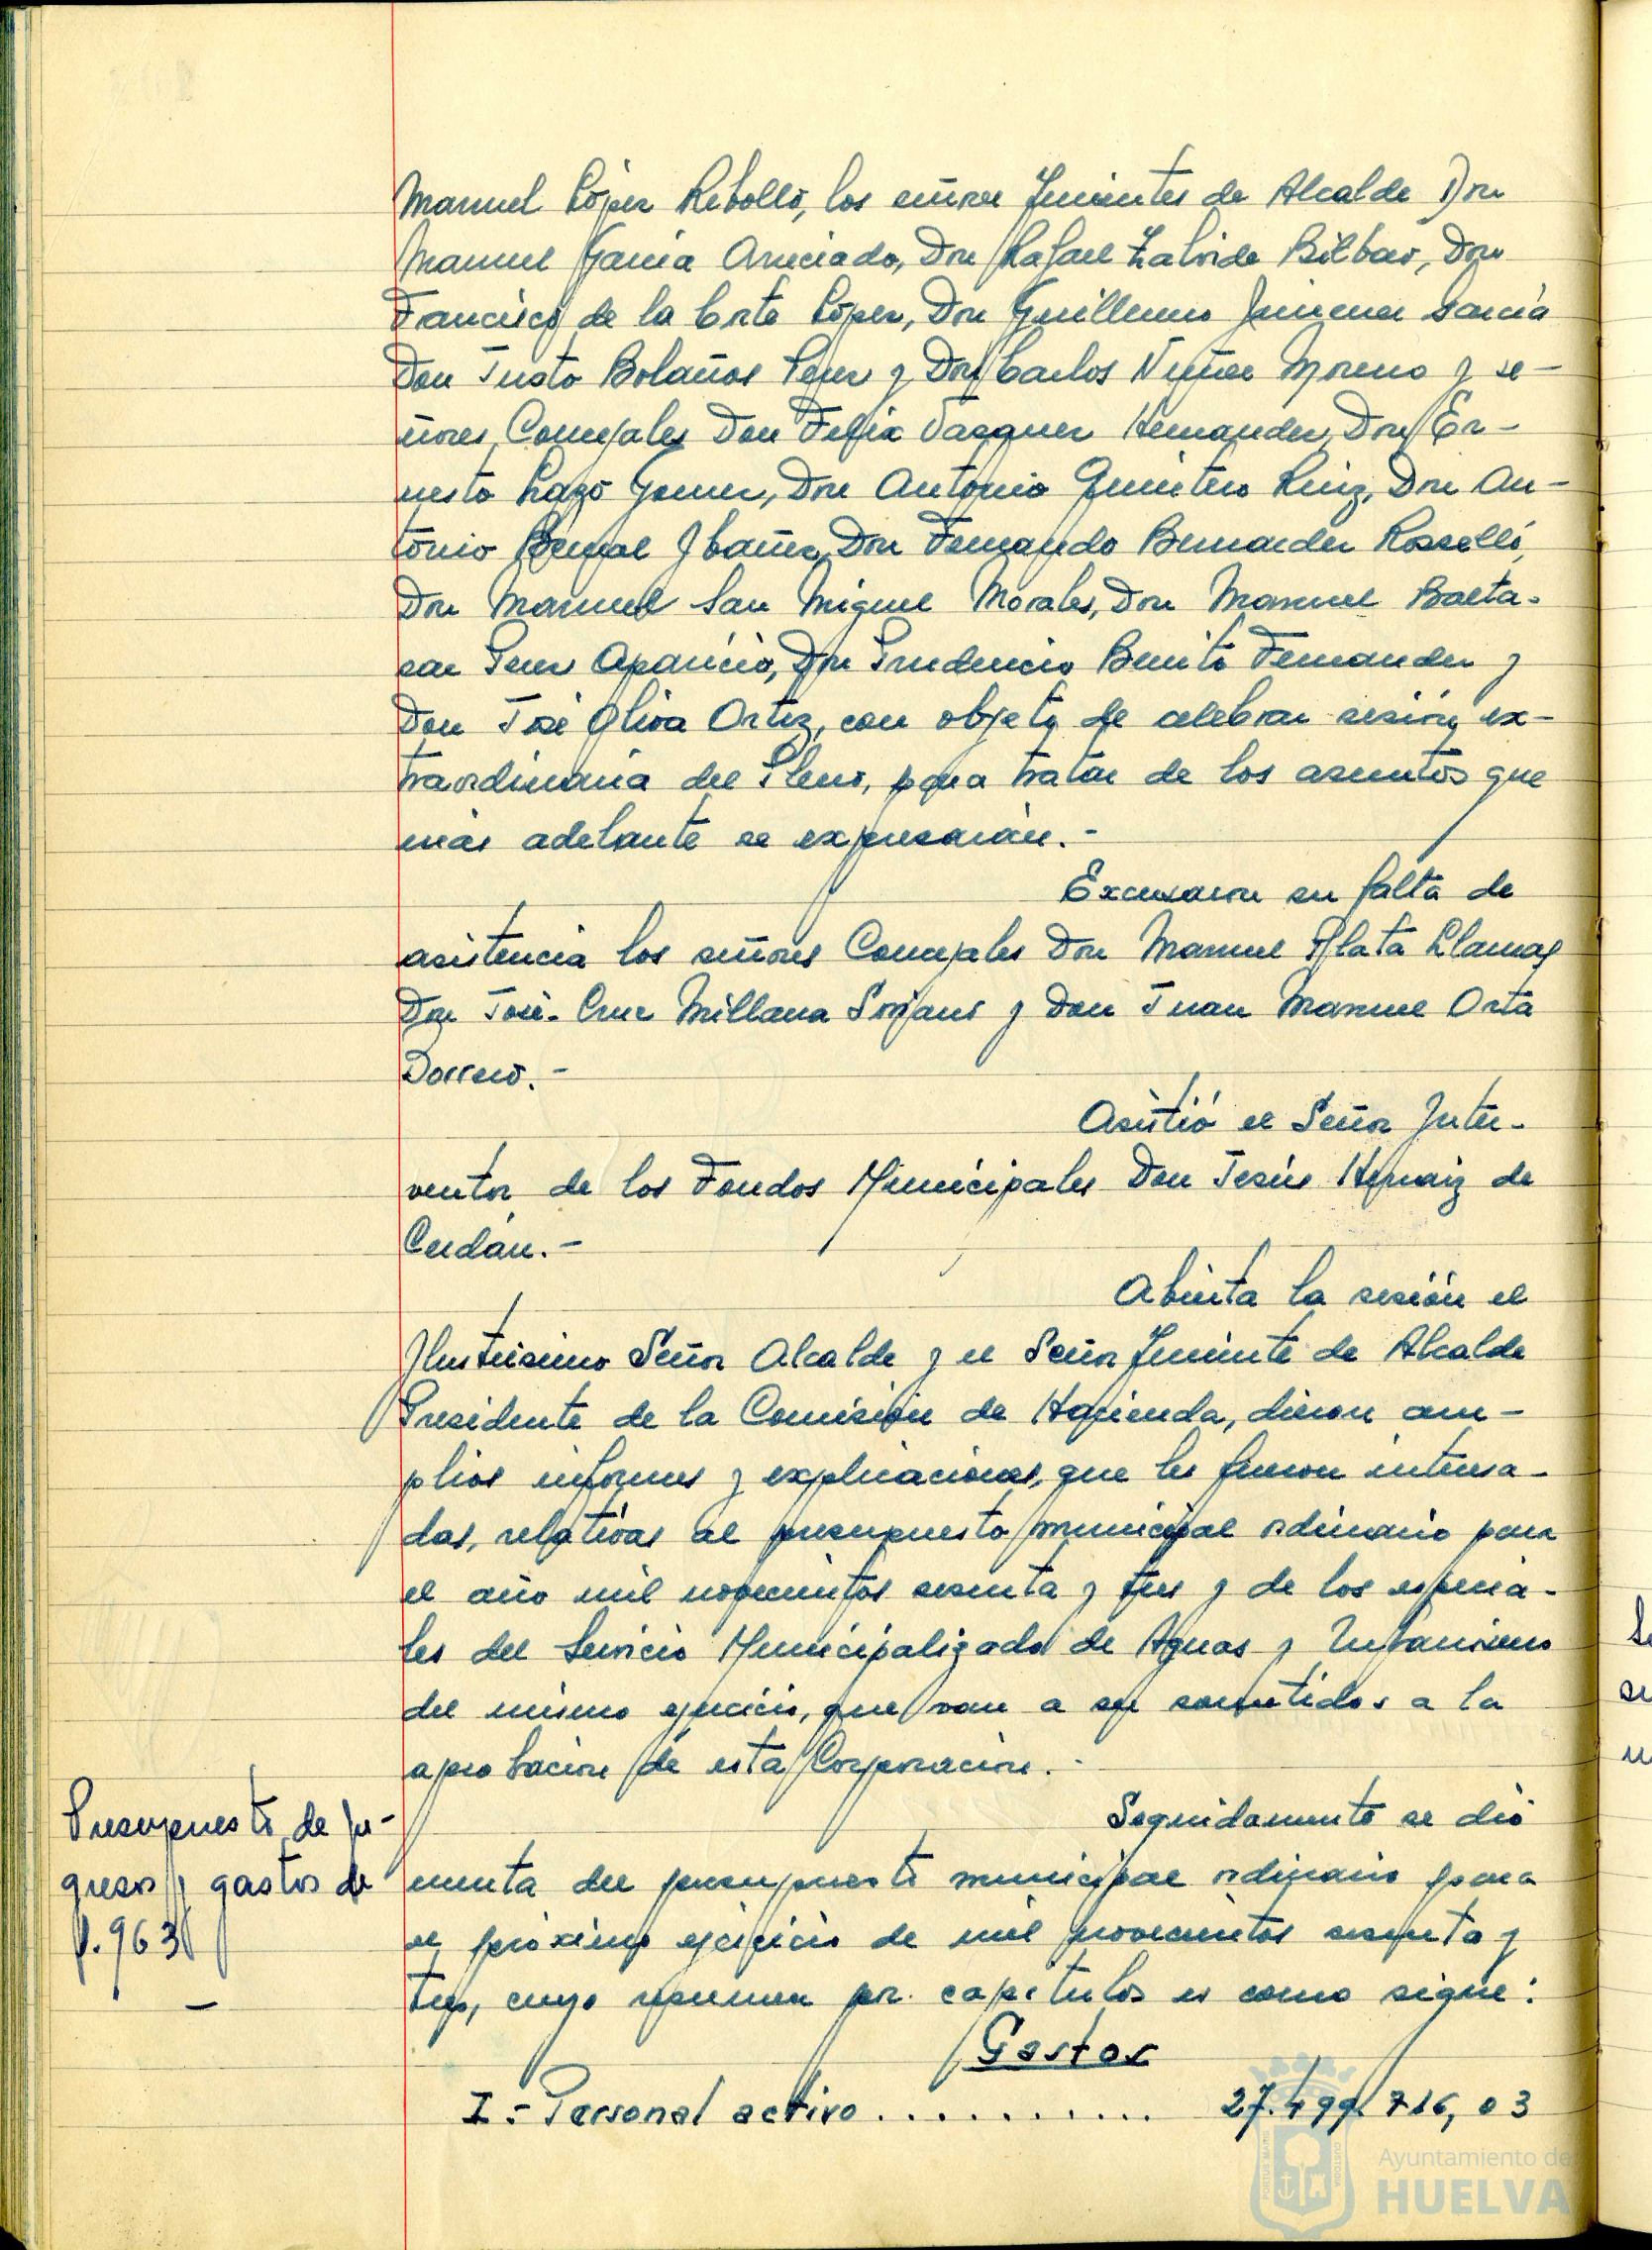 Manuel López Rebollo, los señores Tenientes de Alcalde Don
Manuel García Anunciado, Don Rafael Zalvide Bilbao, Don
Francisco de la Corte López, Don Guillermo Jimenez García
Don Justo Bolaños Perez y Don Carlos Nuñez Moreno y se-
ñores Concejales Don Felix Vazquez Hernandez, Don Er-
nesto Lazo Gomez, Don Antonio Quintero Ruiz, Don An-
tonio Bernal Ibañez, Don Fernando Bermudez Rosselló,
Don Manuel San Miguel Morales, Don Manuel Balta-
sar Perez Aparicio, Don Prudencio Benito Fernandez y
Don José Oliva Ortiz, con objeto de celebrar sesión ex-
traordinaria del Pleno, para tratar de los asuntos que
más adelante se expresarán.-
Excusaron su falta de
asistencia los señores Concejales Don Manuel Plata Llamas
Don José-Cruz Millana Soriano y Don Juan Manuel Orta
Borrero.-
Asistió el Señor Inter-
ventor de los Fondos Municipales Don Jesús Hernaiz de
Cerdán.-
Abierta la sesión el
Ilustrisimo Señor Alcalde y el Señor Teniente de Alcalde
Presidente de la Comisión de Hacienda, dieron am-
plios informes y explicaciones, que les fueron interesa-
das, relativas al presupuesto municipal ordinario para
el año mil novecientos sesenta y tres y de los especia-
les del Servicio Municipalizado de Aguas y Urbanismo
del mismo ejercicio, que van a ser sometidos a la
aprobación de esta Corporación.-
Presupuesto de In-
gresos y gastos de
1.963
—
Seguidamente se dió
cuenta del presupuesto municipal ordinario para
el próximo ejercicio de mil novecientos sesenta y
tres, cuyo resumen por capitulos es como sigue:
Gastos
I.- Personal activo ........... 27.499.716,03
Ayuntamiento de
HUELVA